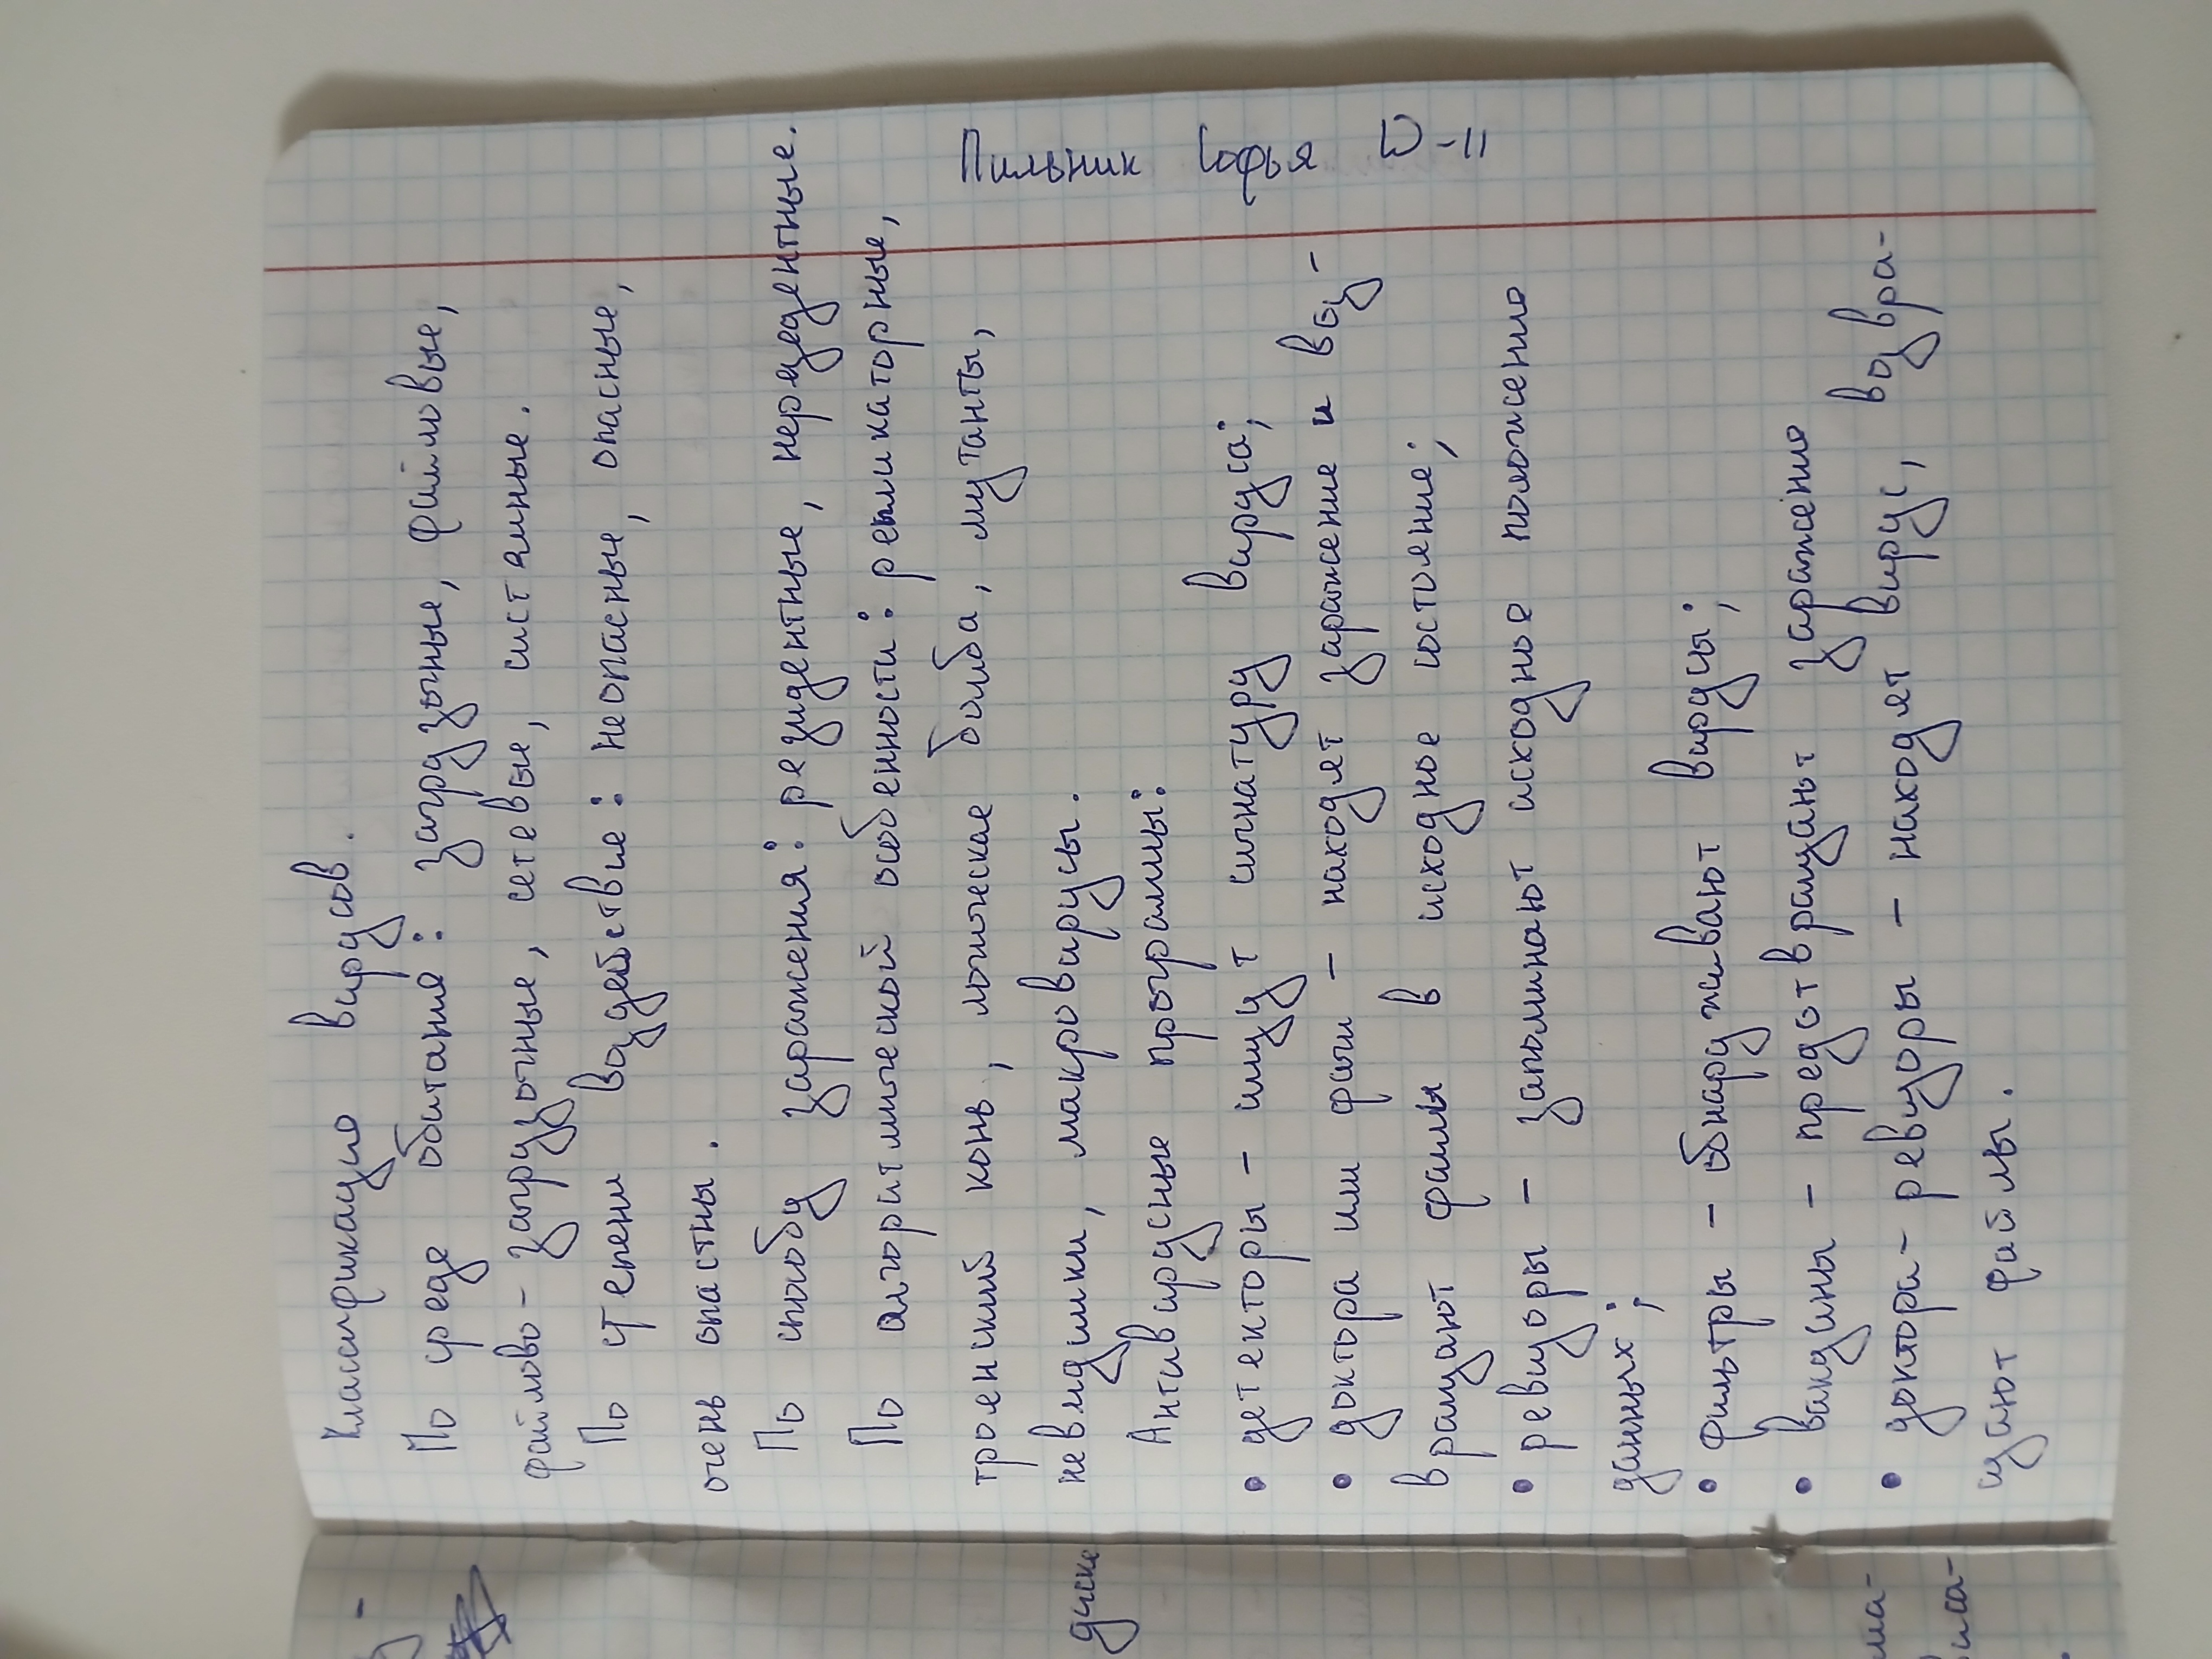 Пильник Софья Ю-11
Классификацию вирусов.
По среде обитания: загрузочные, файловые,
файлово-загрузочные, сетевые, системные.
По степени воздействие: неопасные, опасные,
очень опастны.
По способу заражения: резидентные, нерезидентные.
По алгоритмической особенности: репликаторные,
троенский конь, логическае бомба, мутанты,
невидимки, макровирусы.
Антивирусные программы:
• детекторы - ищут сигнатуру вируса;
• доктора или фаги - находят заражение и воз-
вращают файлы в исходное состояние;
• ревизоры - запоминают исходное положению
данных;
• фильтры - обнаруживают вирусы;
• вакцины - предотвращают заражению
• доктора-ревизоры - находят вирус, возвра-
щают файлы.
диске